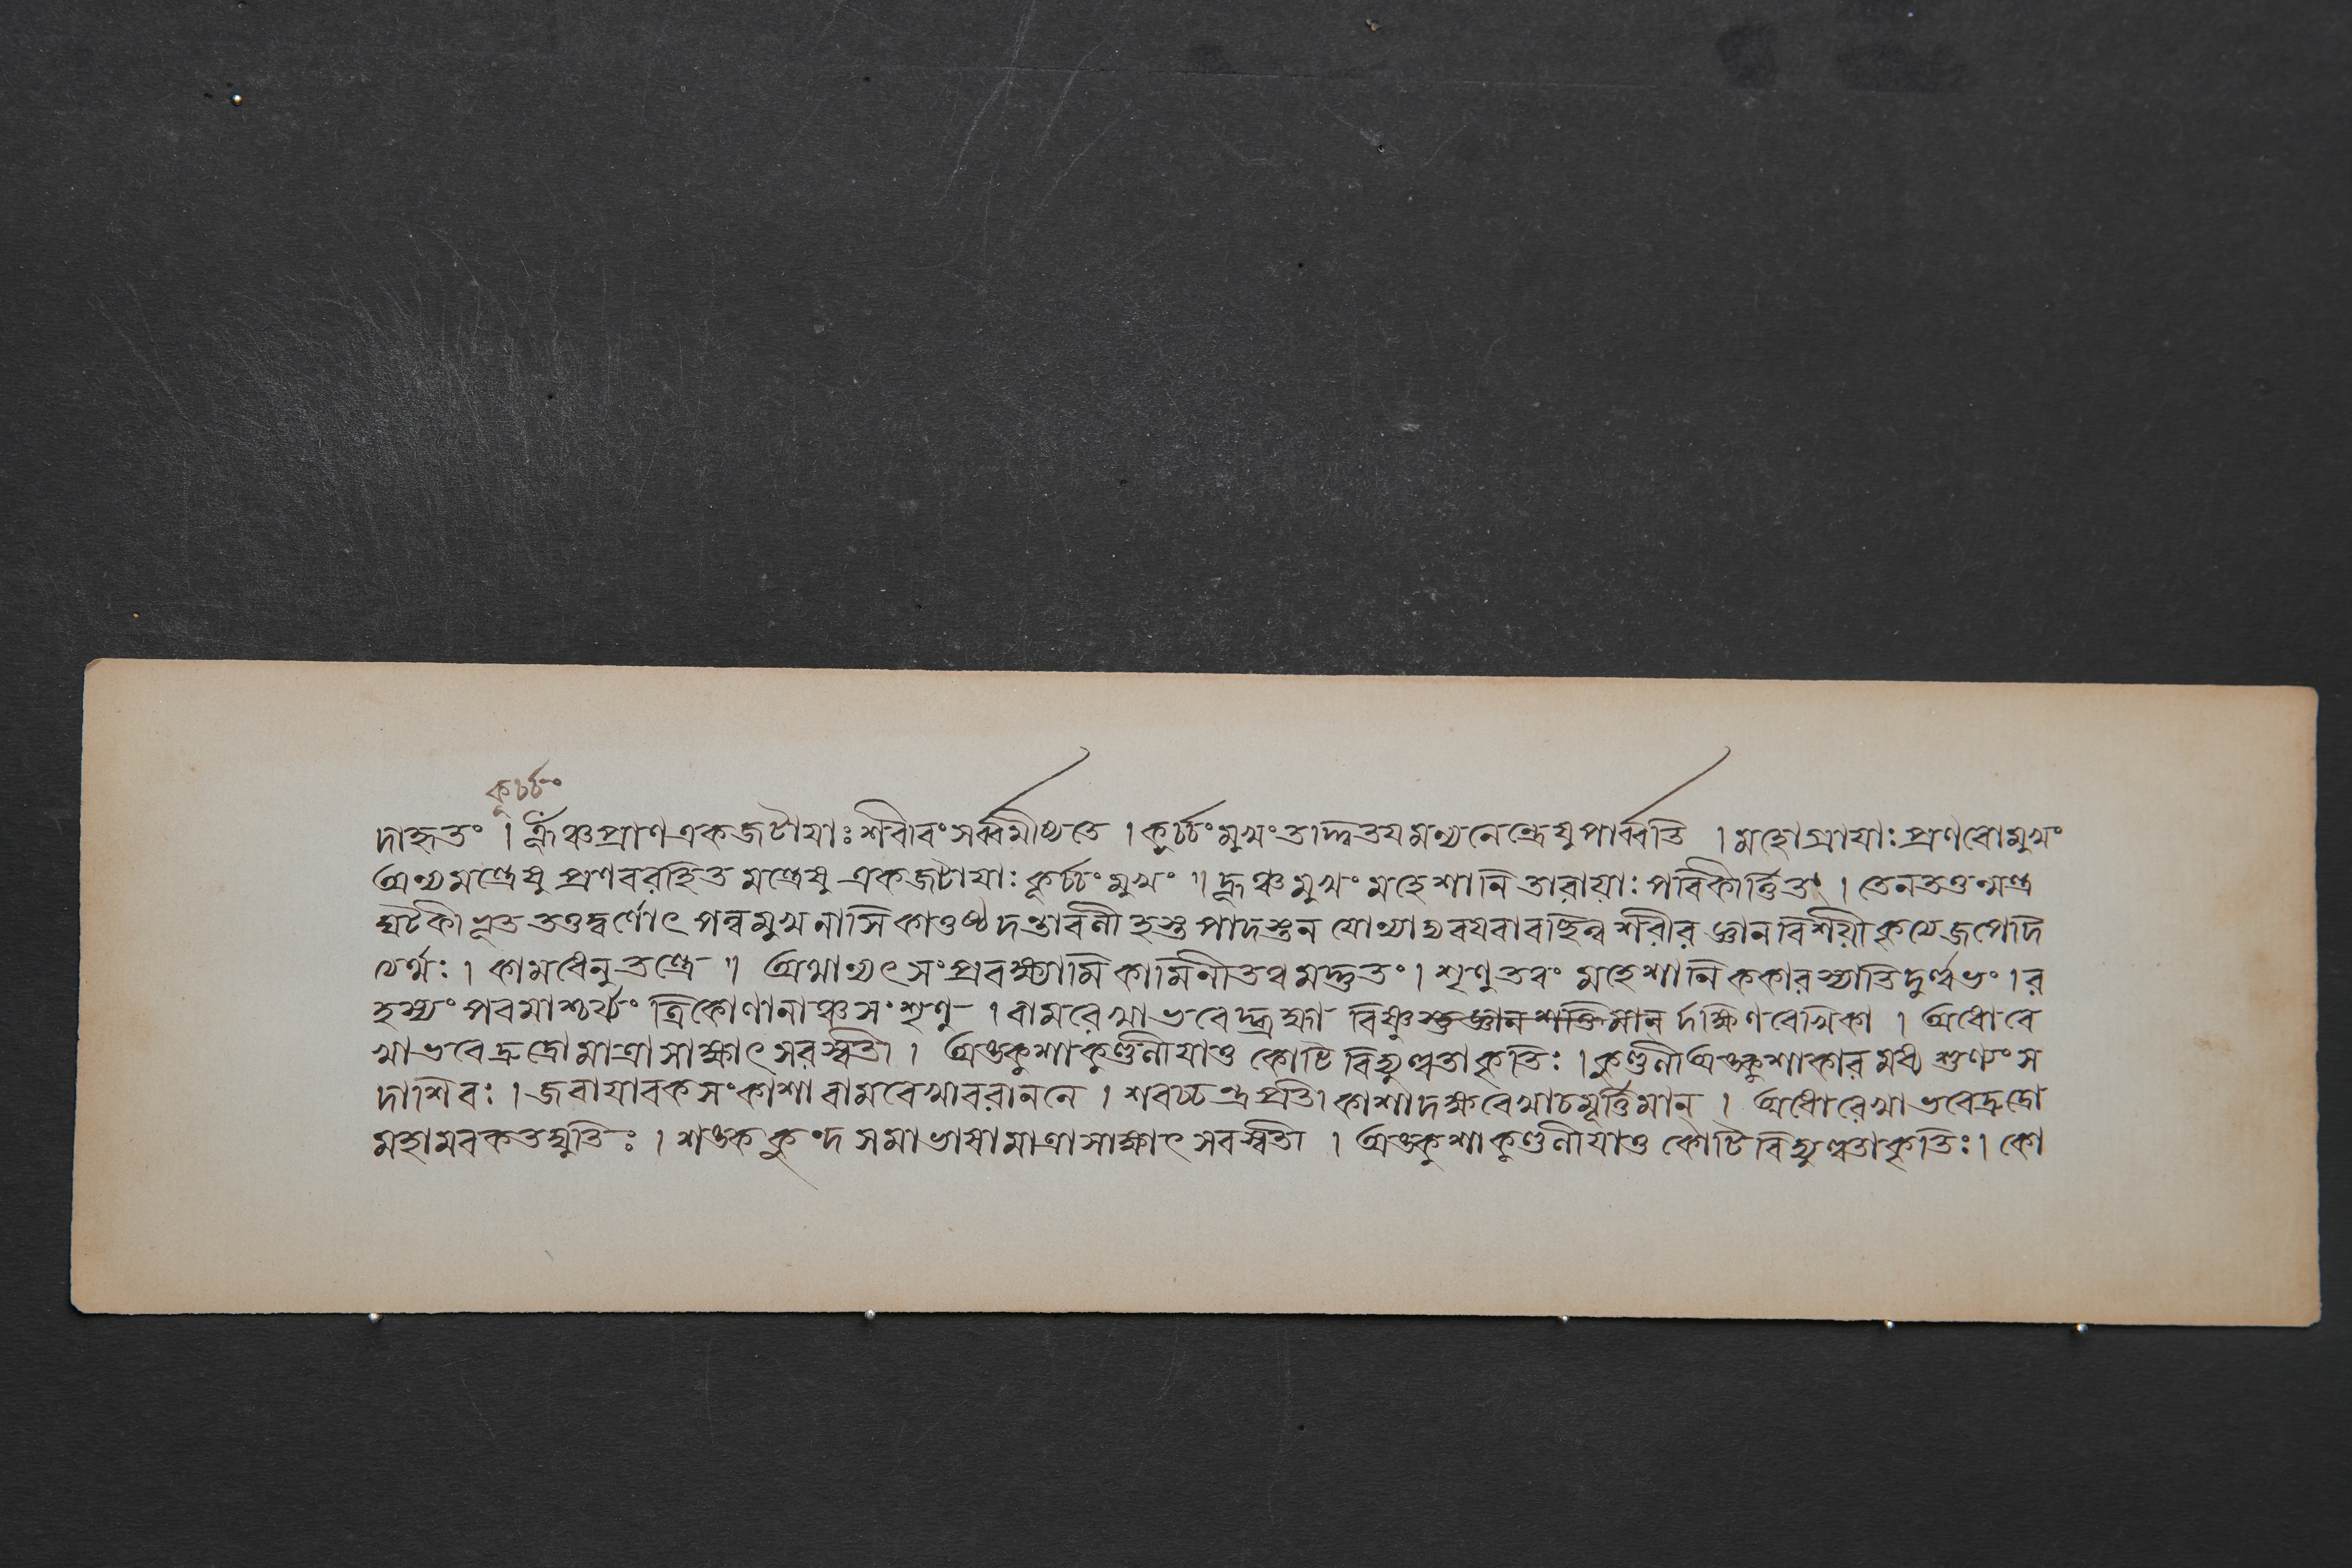 কূর্চ্চং
দাহৃতং । হ্রূঁঞ্চ প্রাণ একজটায়াঃ শরীরং সর্ব্বমীথ্যতে । কূর্চ্চং মুখং তাদ্দৃতয মন্থনেন্ত্রেষু পার্ব্বতি । মহোগ্রায়াঃ প্রণবো মুখং
অন্যমন্ত্রেষু প্রণবরহিত মন্ত্রেষু একজটায়াঃ কূর্চ্চং মুখং ॥ হ্রূঞ্চ মুখং মহেশানি তারায়াঃ পরিকীর্ত্তিতং । তেন তত্তন্মন্ত্র
ঘটকীভূত তত্তদ্বর্ণোৎপন্ন মুখ নাসিকা ওষ্ঠ দন্তাবলী হস্ত পাদ স্তন যোন্যাদ্যবয়বাবচ্ছিন্ন শরীর জ্ঞান বিশয়ীকৃত্যে জপেদি
ত্যর্থঃ । কামধেনুতন্ত্রে ॥ অথান্যৎ সংপ্রবক্ষ্যামি কামিনীতত্ত্বমদ্ভুতং । শৃণু তত্ত্বং মহেশানি ককারস্যাতিদুর্ল্লভং । র
হস্যং পরমাশ্চর্য্যং ত্রিকোণানাঞ্চ সংশৃণু । বামরেখা ভবেদ্ব্রহ্মা বিষ্ণুস্তু জ্ঞান শক্তিমান্ দক্ষিণরেখিকা । অধোরে
খা ভবেদ্রুদ্রো মাত্রা সাক্ষাৎ সরস্বতী । অঙ্কুশা কুণ্ডলী যাতু কোটি বিদ্যুল্লতাকৃতিঃ । কুণ্ডলী অঙ্কুশাকার মধ্য শুণ্যং স
দাশিবঃ । জবাযাবকসংকাশা বামরেখা বরাননে । শরচ্চন্দ্র প্রতীকাশা দক্ষরেখা চ মূর্ত্তিমান্ । অধোরেখা ভবেদ্রুদ্রো
মহামরকতদ্যুতিঃ । শঙ্ক কুন্দ সমাভাসা মাত্রা সাক্ষাৎ সরস্বতী । অঙ্কুশা কুণ্ডলী যাতু কোটি বিদ্যুল্লতাকৃতিঃ । কো